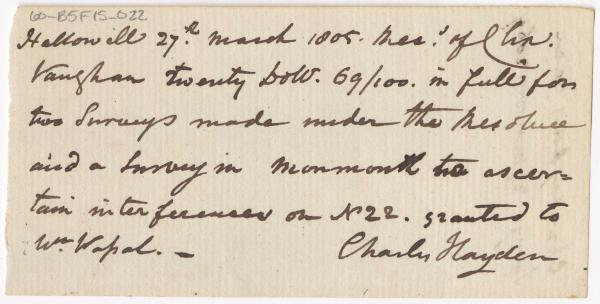 60-B5F15-022
Hallowell 27th. March 1805. Rec.d of Chs.
Vaughan twenty Doll. 69/100. in full for
two Surveys made under the Resolve
and a Survey in Monmouth to ascer=
tain interferences on N22. granted to
Wm Vassal. -
Charles Hayden